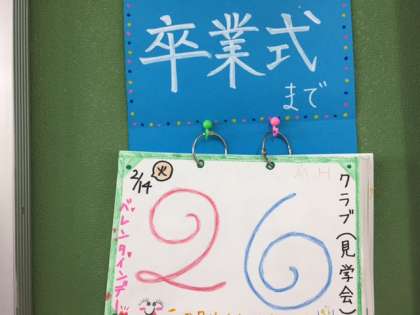 卒業式
まで
2/14 火
バレンタインデー
26
クラブ(見学会)